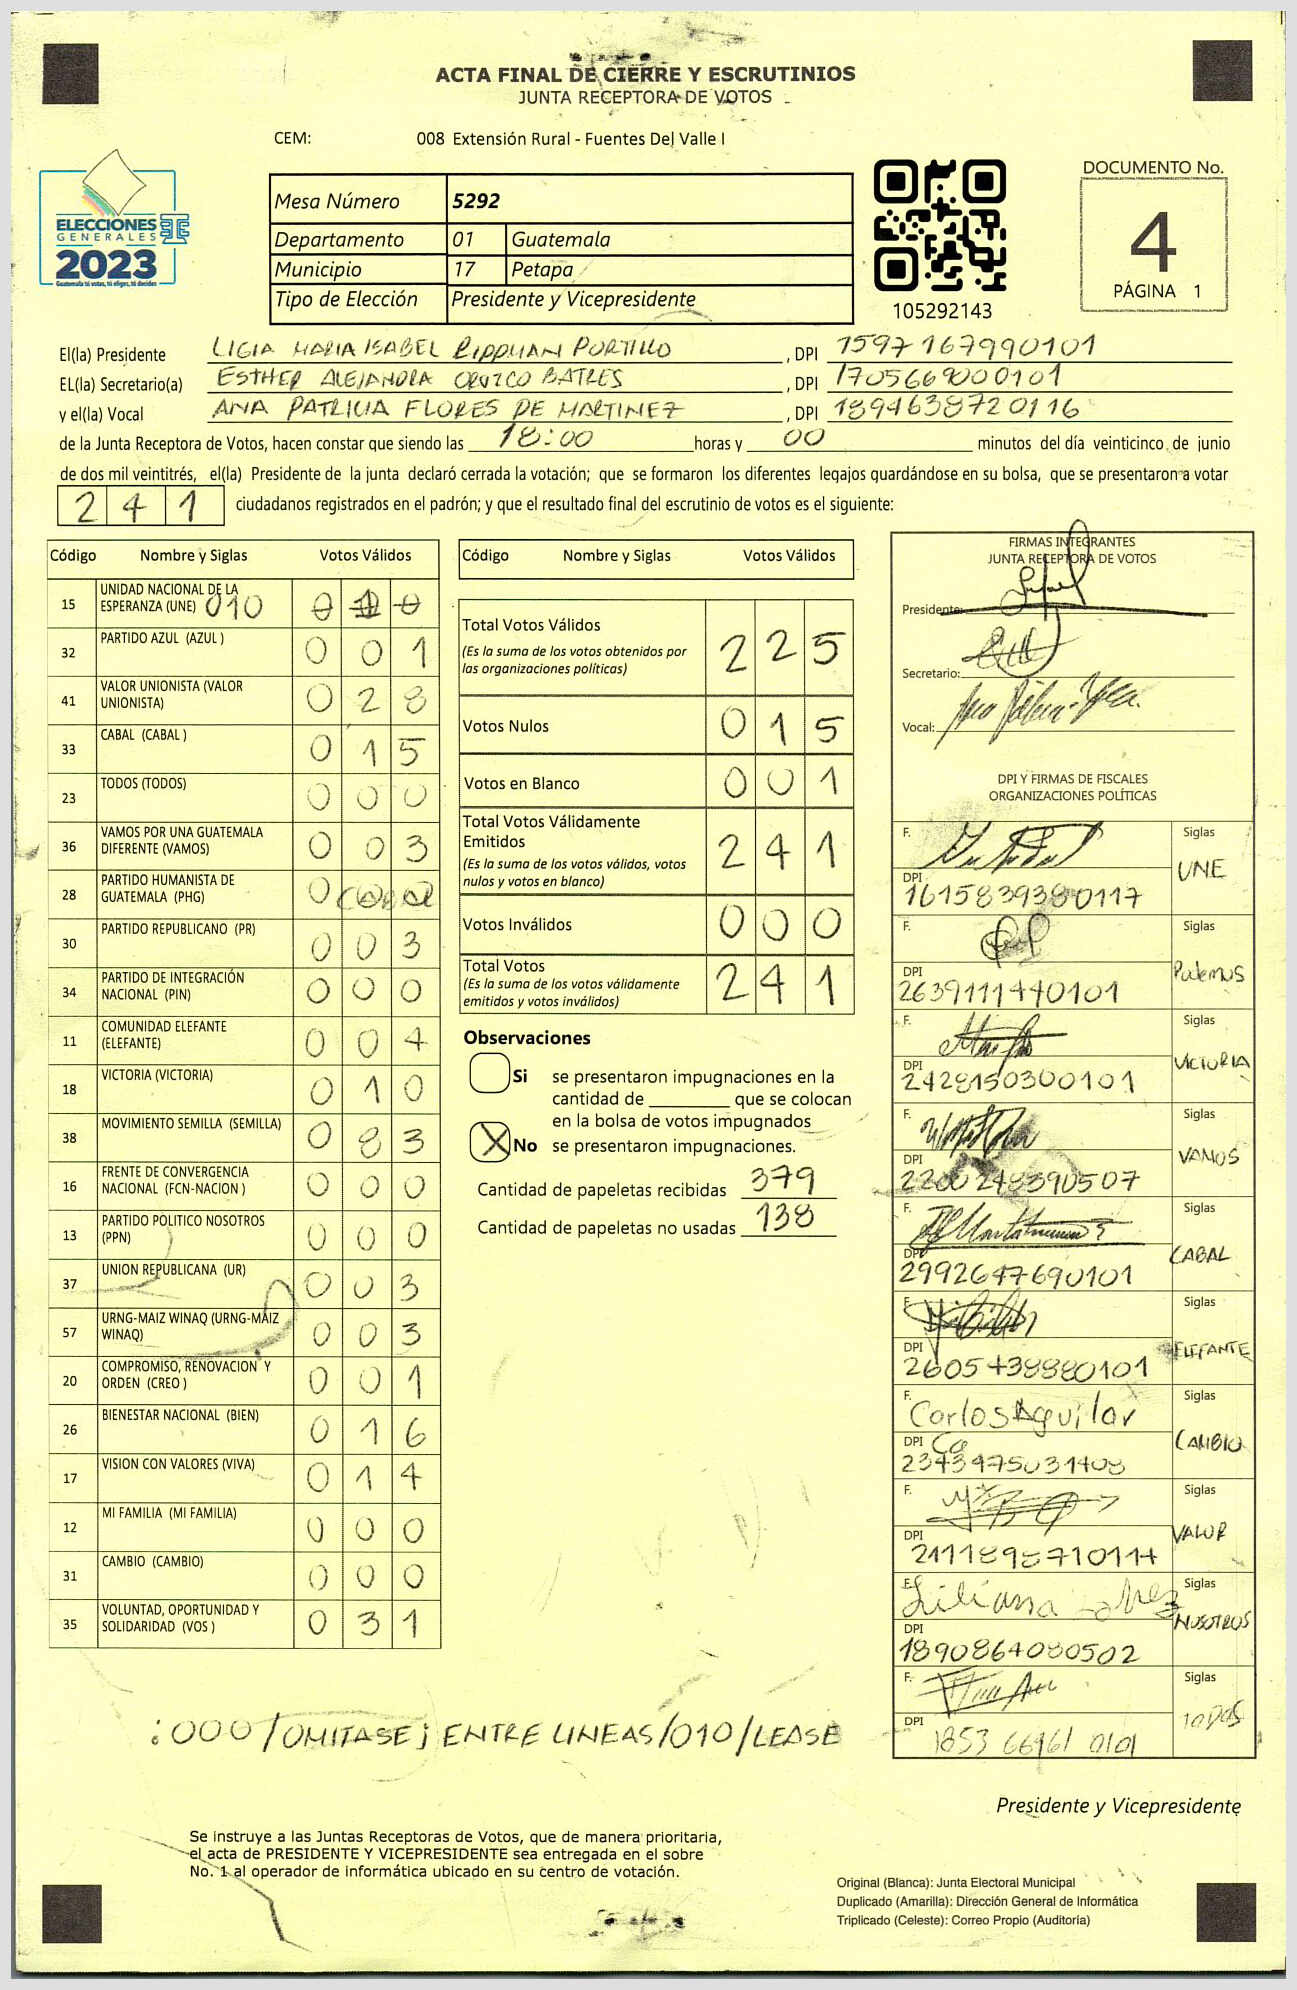 ACTA FINAL DE CIERRE Y ESCRUTINIOS
JUNTA RECEPTORA DE VOTOS
CEM: 008 Extensión Rural - Fuentes Del Valle I
ELECCIONES
GENERALES
2023
Guatemala tú votas, tú eliges, tú decides
Mesa Número 5292
Departamento 01 Guatemala
Municipio 17 Petapa
Tipo de Elección Presidente y Vicepresidente
105292143
DOCUMENTO No.
4
PÁGINA 1
El(la) Presidente LIGIA MARIA ISABEL RIPPMAN PORTILLO, DPI 1597167990101
EL(la) Secretario(a) ESTHER ALEJANDRA OROZCO BATRES, DPI 1705669000101
y el(la) Vocal ANA PATRICIA FLORES DE MARTINEZ, DPI 1894638720116
de la Junta Receptora de Votos, hacen constar que siendo las 18:00 horas y 00 minutos del día veinticinco de junio
de dos mil veintitrés, el(la) Presidente de la junta declaró cerrada la votación; que se formaron los diferentes legajos guardándose en su bolsa, que se presentaron a votar
241 ciudadanos registrados en el padrón; y que el resultado final del escrutinio de votos es el siguiente:
Código Nombre y Siglas Votos Válidos
15 UNIDAD NACIONAL DE LA
ESPERANZA (UNE) 010
32 PARTIDO AZUL (AZUL ) 0 0 1
41 VALOR UNIONISTA (VALOR
UNIONISTA) 0 2 8
33 CABAL (CABAL ) 0 1 5
23 TODOS (TODOS) 0 0 0
36 VAMOS POR UNA GUATEMALA
DIFERENTE (VAMOS) 0 0 3
28 PARTIDO HUMANISTA DE
GUATEMALA (PHG) 0
30 PARTIDO REPUBLICANO (PR) 0 0 3
34 PARTIDO DE INTEGRACIÓN
NACIONAL (PIN) 0 0 0
11 COMUNIDAD ELEFANTE
(ELEFANTE) 0 0 4
18 VICTORIA (VICTORIA) 0 1 0
38 MOVIMIENTO SEMILLA (SEMILLA) 0 8 3
16 FRENTE DE CONVERGENCIA
NACIONAL (FCN-NACION ) 0 0 0
13 PARTIDO POLITICO NOSOTROS
(PPN) 0 0 0
37 UNION REPUBLICANA (UR) 0 0 3
57 URNG-MAIZ WINAQ (URNG-MAIZ
WINAQ) 0 0 3
20 COMPROMISO, RENOVACION Y
ORDEN (CREO ) 0 0 1
26 BIENESTAR NACIONAL (BIEN) 0 1 6
17 VISION CON VALORES (VIVA) 0 1 4
12 MI FAMILIA (MI FAMILIA) 0 0 0
31 CAMBIO (CAMBIO) 0 0 0
35 VOLUNTAD, OPORTUNIDAD Y
SOLIDARIDAD (VOS ) 0 3 1
Código Nombre y Siglas Votos Válidos
Total Votos Válidos 2 2 5
(Es la suma de los votos obtenidos por
las organizaciones políticas)
Votos Nulos 0 1 5
Votos en Blanco 0 0 1
Total Votos Válidamente
Emitidos 2 4 1
(Es la suma de los votos válidos, votos
nulos y votos en blanco)
Votos Inválidos 0 0 0
Total Votos 2 4 1
(Es la suma de los votos válidamente
emitidos y votos inválidos)
Observaciones
Si se presentaron impugnaciones en la
cantidad de ________ que se colocan
en la bolsa de votos impugnados
X No se presentaron impugnaciones.
Cantidad de papeletas recibidas 379
Cantidad de papeletas no usadas 138
FIRMAS INTEGRANTES
JUNTA RECEPTORA DE VOTOS
Presidente:
Secretario:
Vocal:
DPI Y FIRMAS DE FISCALES
ORGANIZACIONES POLÍTICAS
F. Siglas
DPI 1615839380117 UNE
F. Siglas
DPI 2639111440101 Podemos
F. Siglas
DPI 2428150300101 VICTORIA
F. Siglas
DPI 2200248390507 VAMOS
F. Siglas
DPI 2992647690101 CABAL
F. Siglas
DPI 2605438880101 ELEFANTE
F. Carlos Aguilar Siglas
DPI 2343475031408 CAMBIO
F. Siglas
DPI 2111895710114 VALOR
F. Liliana Siglas
DPI 1890864080502 NOSOTROS
F. Siglas
DPI 1853 66961 0101 TODOS
:000/OMITASE; ENTRE LINEAS/010/LEASE
Presidente y Vicepresidente
Se instruye a las Juntas Receptoras de Votos, que de manera prioritaria,
el acta de PRESIDENTE Y VICEPRESIDENTE sea entregada en el sobre
No. 1 al operador de informática ubicado en su centro de votación.
Original (Blanca): Junta Electoral Municipal
Duplicado (Amarilla): Dirección General de Informática
Triplicado (Celeste): Correo Propio (Auditoría)